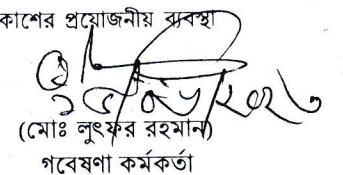 কাশের প্রয়োজনীয় ব্যবস্থা
(মোঃ লুৎফর রহমান)
গবেষণা কর্মকর্তা